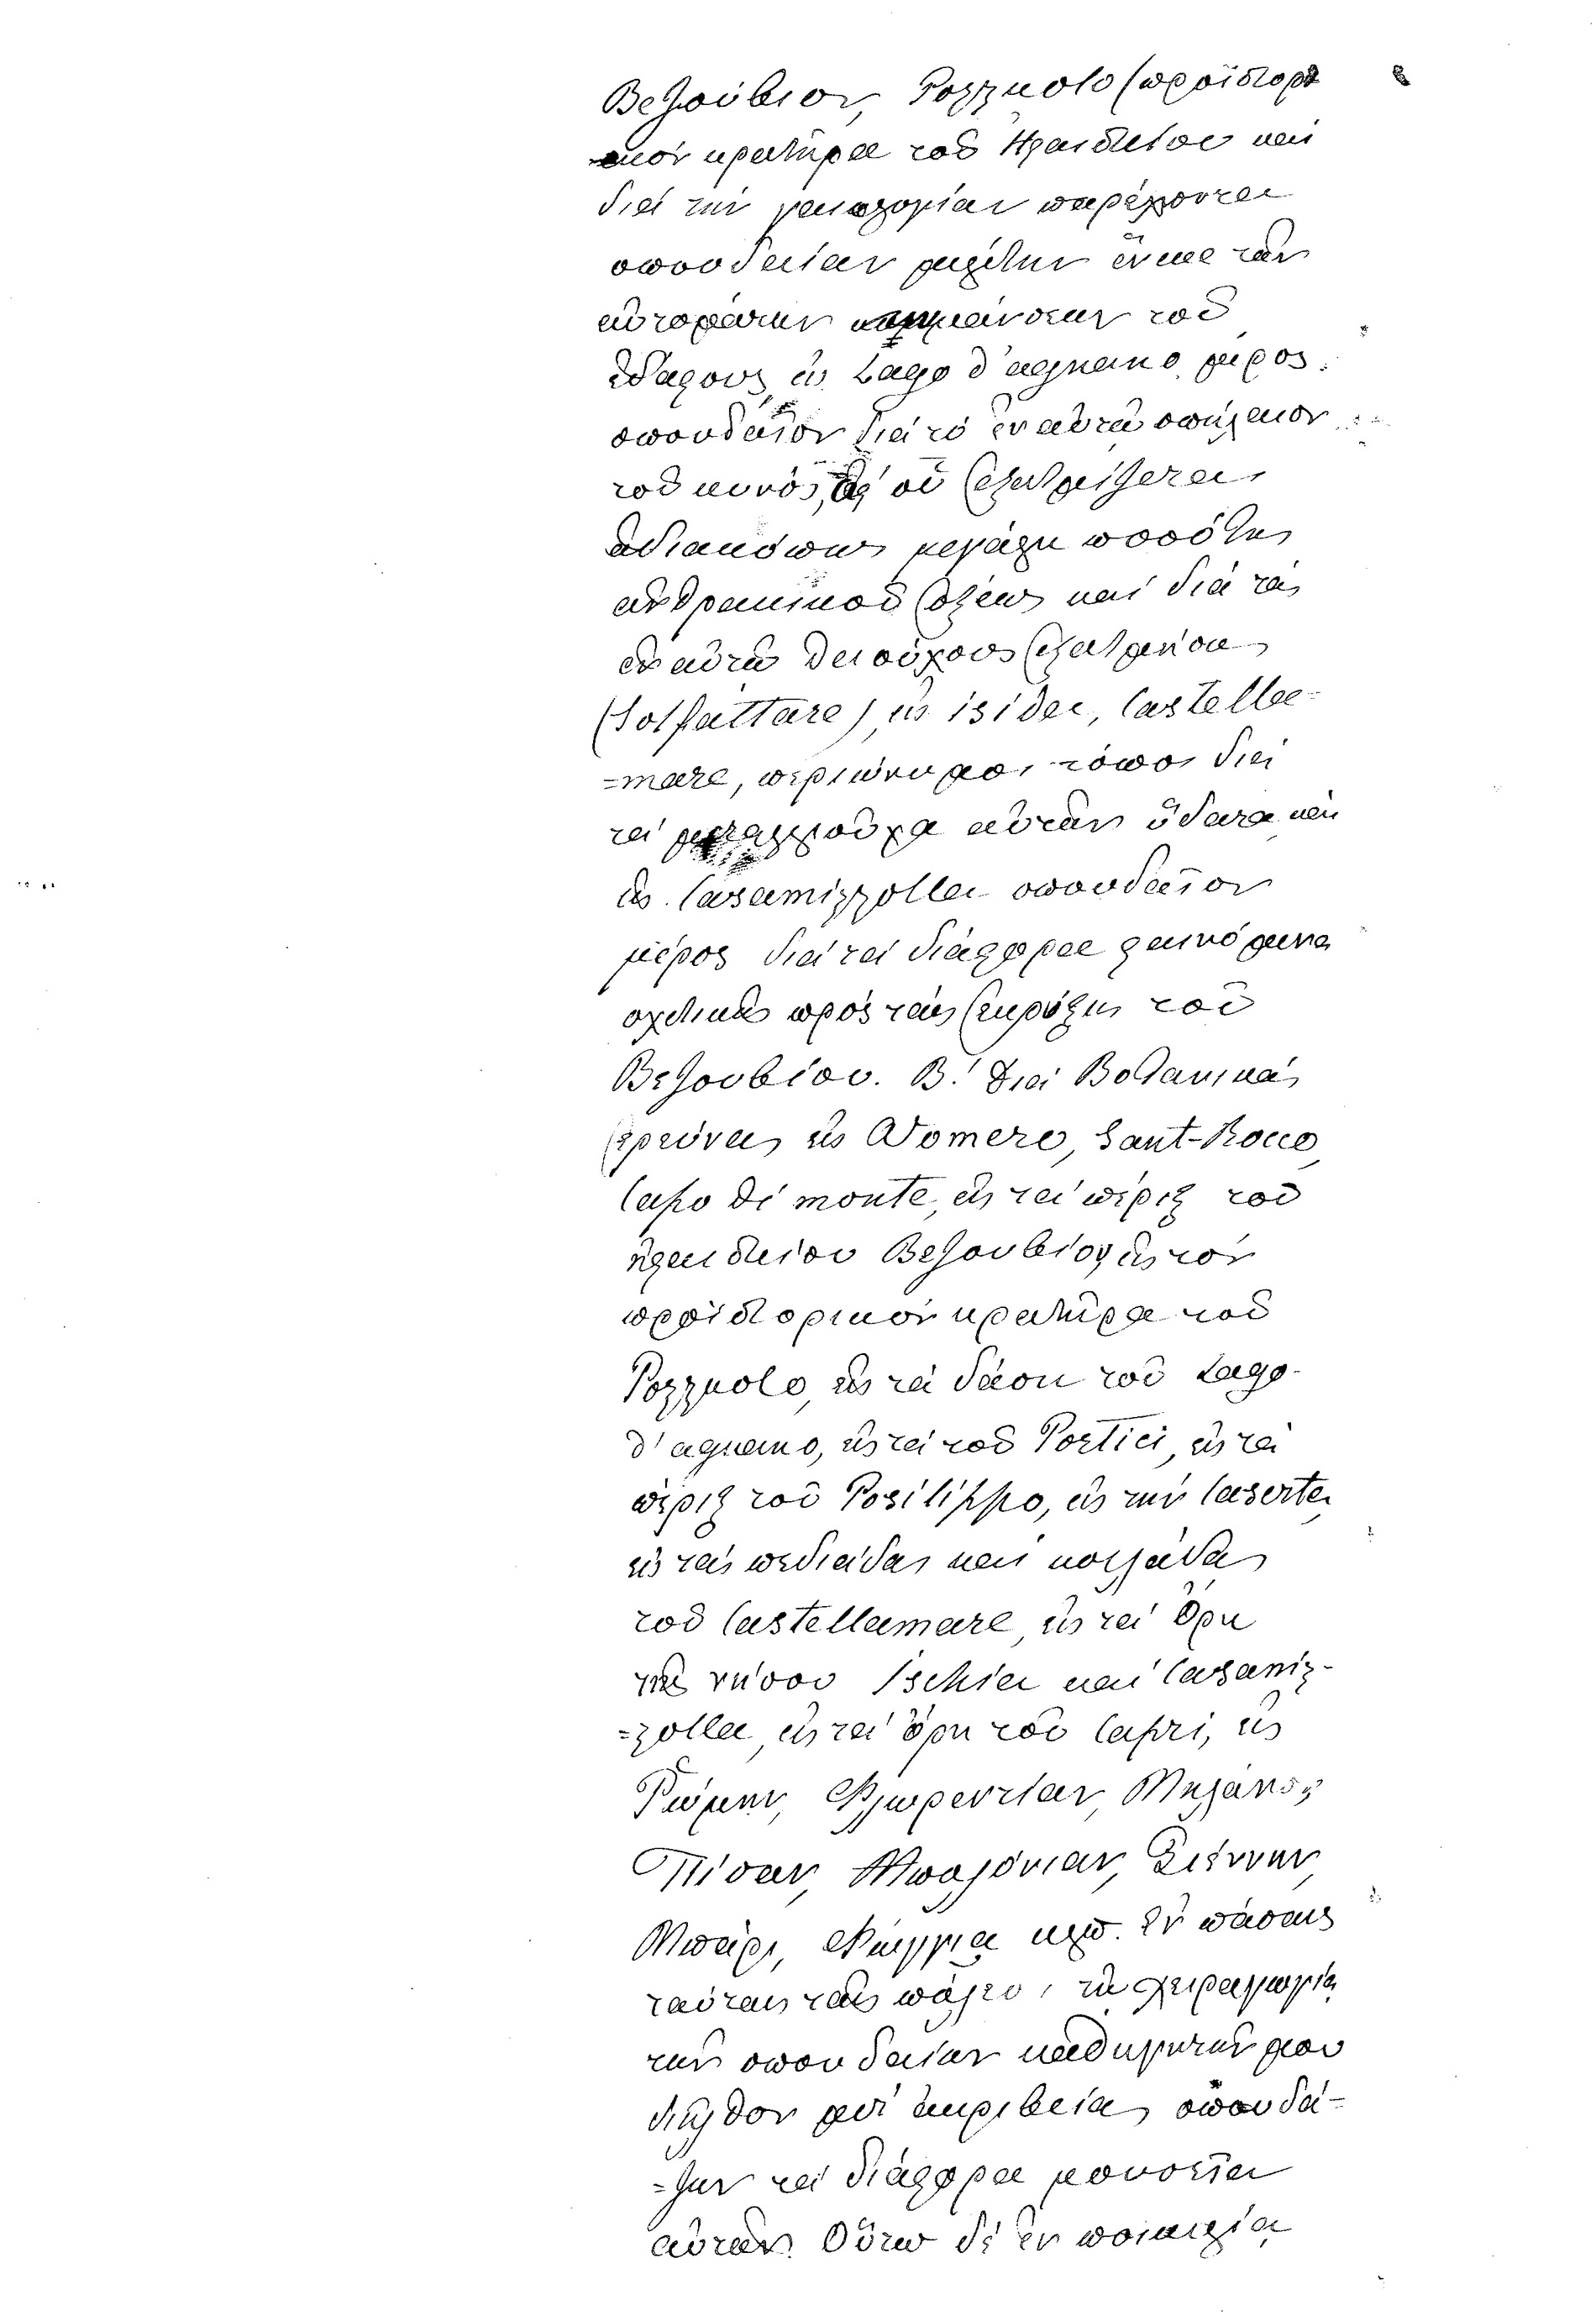 Βεζούβιον, Pozzuolo (προϊστορι
κὸν κρατῆρα τοῦ Ἡφαιστείου καὶ
διὰ τὴν γεωλογίαν παρέχοντα
σπουδαίαν μελέτην ἕνεκα τῶν
αὐτομάτων κυμάνσεων τοῦ
ἐδάφους, εἰς Lago d'agnano, μέρος
σπουδαῖον διὰ τὸ ἐν αὐτῷ σπήλαιον
τοῦ κυνός, ἐξ οὗ ἐξατμίζεται
ἀδιακόπως μεγάλη ποσότης
ἀνθρακικοῦ ὀξέως καὶ διὰ τὰς
ἐν αὐτῷ θειούχους ἐξατμίσεις
(Solfattare), εἰς isidei, Castella=
=mare, περιώνυμοι τόποι διὰ
τὰ μεταλλοῦχα αὐτῶν ὕδατα καὶ
εἰς Casamizzolla σπουδαῖον
μέρος διὰ τὰ διάφορα φαινόμενα
σχετικῶς πρὸς τὰς ἐκρήξεις τοῦ
Βεζουβίου. Β! διὰ Βοτανικὰς
ἐρεύνας εἰς Vomero, Sant-Rocco,
Capo di monte, εἰς τὰ πέριξ τοῦ
ἡφαιστείου Βεζουβίου, εἰς τὸν
προϊστορικὸν κρατῆρα τοῦ
Pozzuolo, εἰς τὰ δάση τοῦ Lago
d'agnano, εἰς τὰ τοῦ Portici, εἰς τὰ
πέριξ τοῦ Posilippo, εἰς τὴν Caserta,
εἰς τὰς πεδιάδας καὶ κοιλάδας
τοῦ Castellamare, εἰς τὰ ὄρη
τῆς νήσου Ischia καὶ Casamiz-
=zolla, εἰς τὰ ὄρη τοῦ Capri, εἰς
Ρώμην, Φλωρεντίαν, Μιλάνον,
Πίσαν, Μπολόνιαν, Σιέννην,
Μπάρι, Φώγγια κλπ. Ἐν πάσαις
ταύταις ταῖς πόλεσι, τῇ χειραγωγίᾳ
τῶν σπουδαίων καθηγητῶν μου
διῆλθον μετ' ἀκριβείας σπουδά-
=ζων τὰ διάφορα μουσεῖα
αὐτῶν. Οὕτω δὲ ἐν ποικιλίᾳ